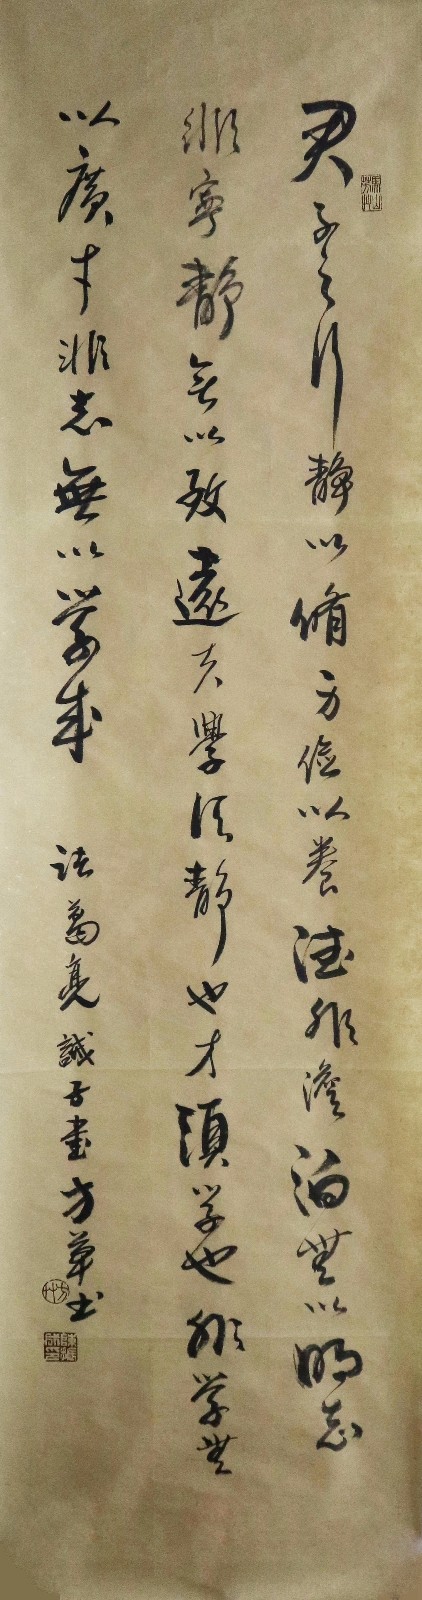 君子之行静以脩身儉以養德非澹泊無以明志
非寧靜無以致遠夫學須靜也才須学也非学無
以廣才非志無以学成 諸葛亮誡子書方草书